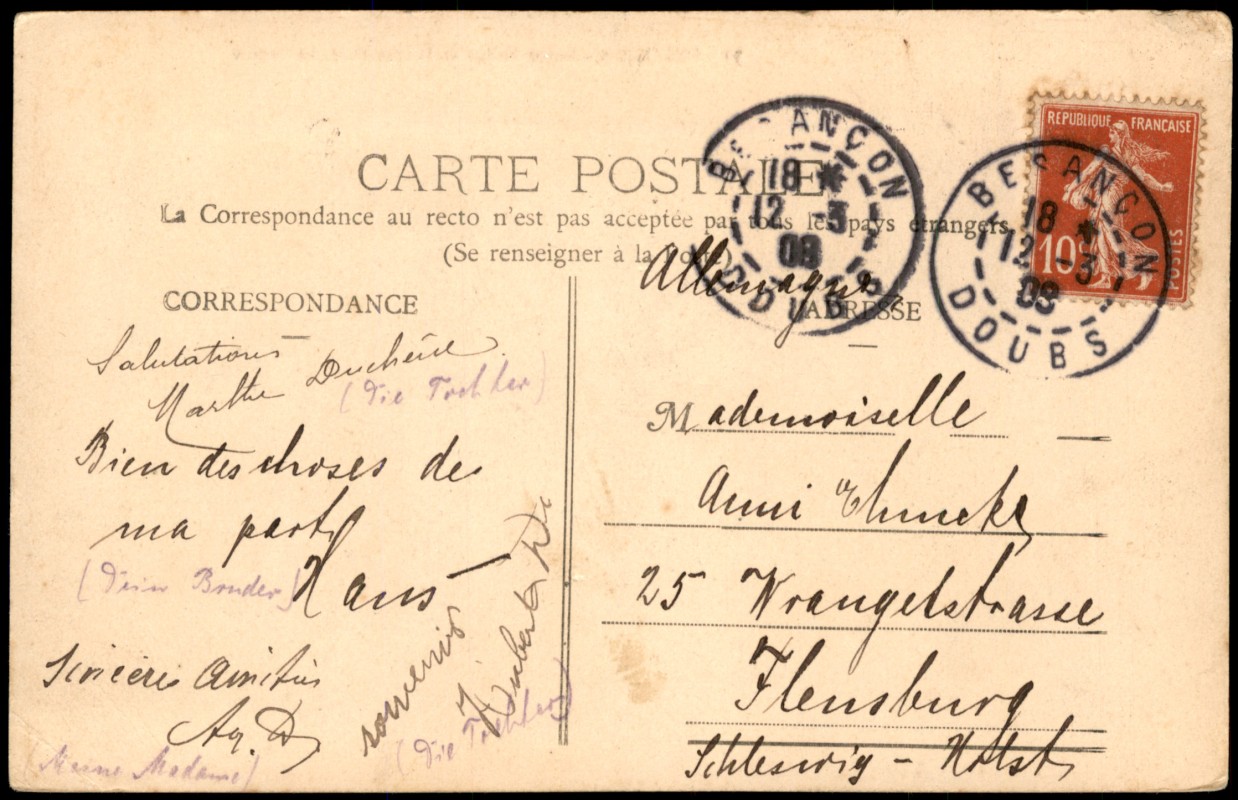 CARTE POSTALE
La Correspondance au recto n'est pas acceptée par tous les pays étrangers
(Se renseigner à la
CORRESPONDANCE
Salutations
Marthe
(die Tochter)
Bien des choses de
ma part
Hans
(Dein Bruder)
Sincères Amitiés
Ag. D.
(Meine Madame)
souvenir
(die Tochter)
BESANÇON
18 *
12 -3
08
DOUBS
REPUBLIQUE FRANÇAISE
10c
POSTES
BESANÇON
18 *
12 -3
08
DOUBS
Allemagne
ADRESSE
Mademoiselle
Anni
25 Wrangelstrasse
Flensburg
Schleswig - Holst